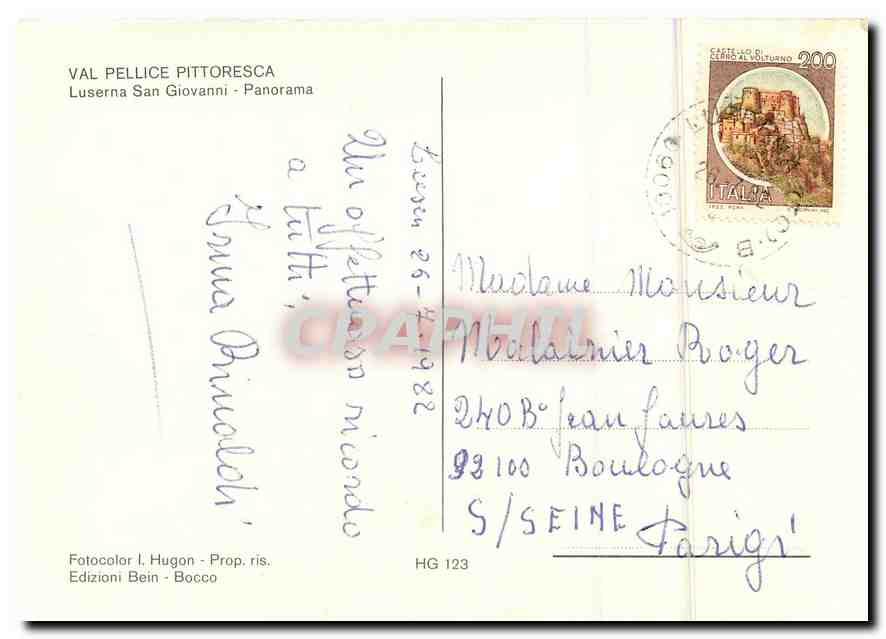 VAL PELLICE PITTORESCA
Luserna San Giovanni - Panorama
26-7-1982
Un affettuoso ricordo
a tutti,
Irma Rinaldi
Fotocolor I. Hugon - Prop. ris.
Edizioni Bein - Bocco
HG 123
CASTELLO DI
CERRO AL VOLTURNO
200
ITALIA
I.P.Z.S. ROMA
10062
Madame Monsieur
Malainier Roger
240 B° Jean Jaures
92100 Boulogne
S/SEINE Parigi
CPAPHIL